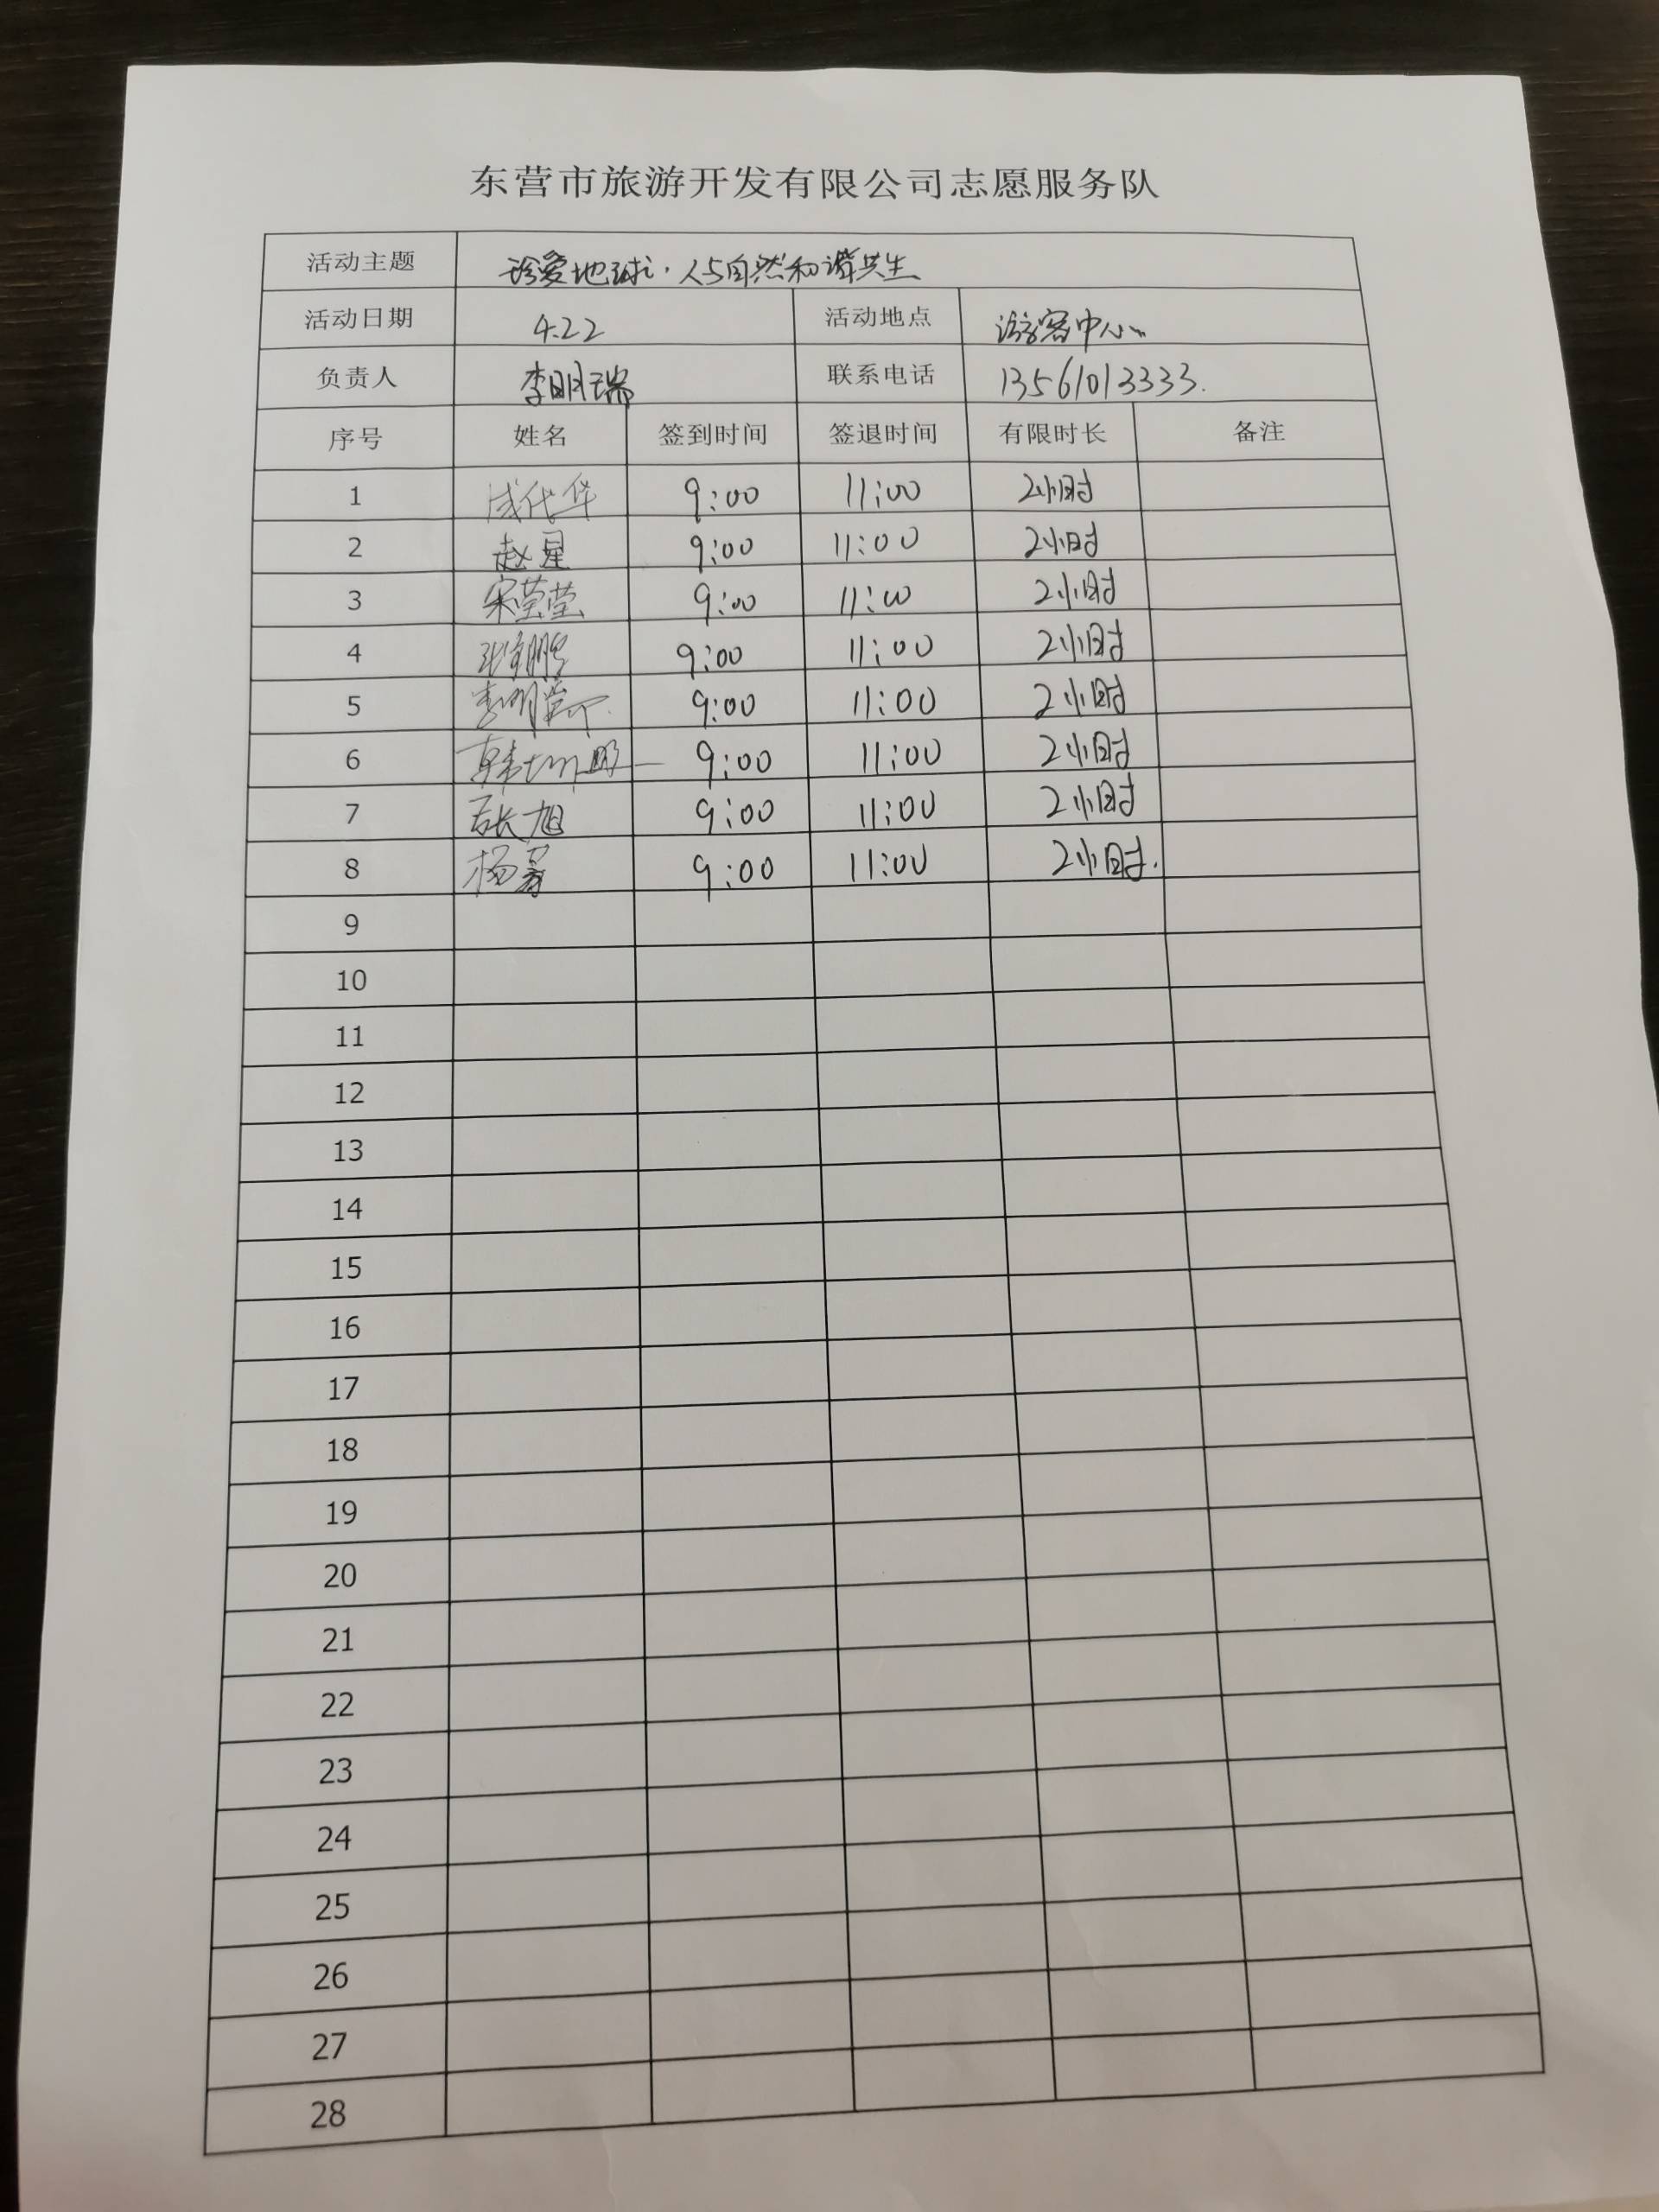 东营市旅游开发有限公司志愿服务队
活动主题 珍爱地球·人与自然和谐共生
活动日期 4.22 活动地点 游客中心
负责人 李明瑞 联系电话 13561013333.
序号 姓名 签到时间 签退时间 有限时长 备注
1 成代华 9:00 11:00 2小时
2 赵星 9:00 11:00 2小时
3 宋莹莹 9:00 11:00 2小时
4 9:00 11:00 2小时
5 9:00 11:00 2小时
6 9:00 11:00 2小时
7 张旭 9:00 11:00 2小时
8 杨 9:00 11:00 2小时.
9
10
11
12
13
14
15
16
17
18
19
20
21
22
23
24
25
26
27
28